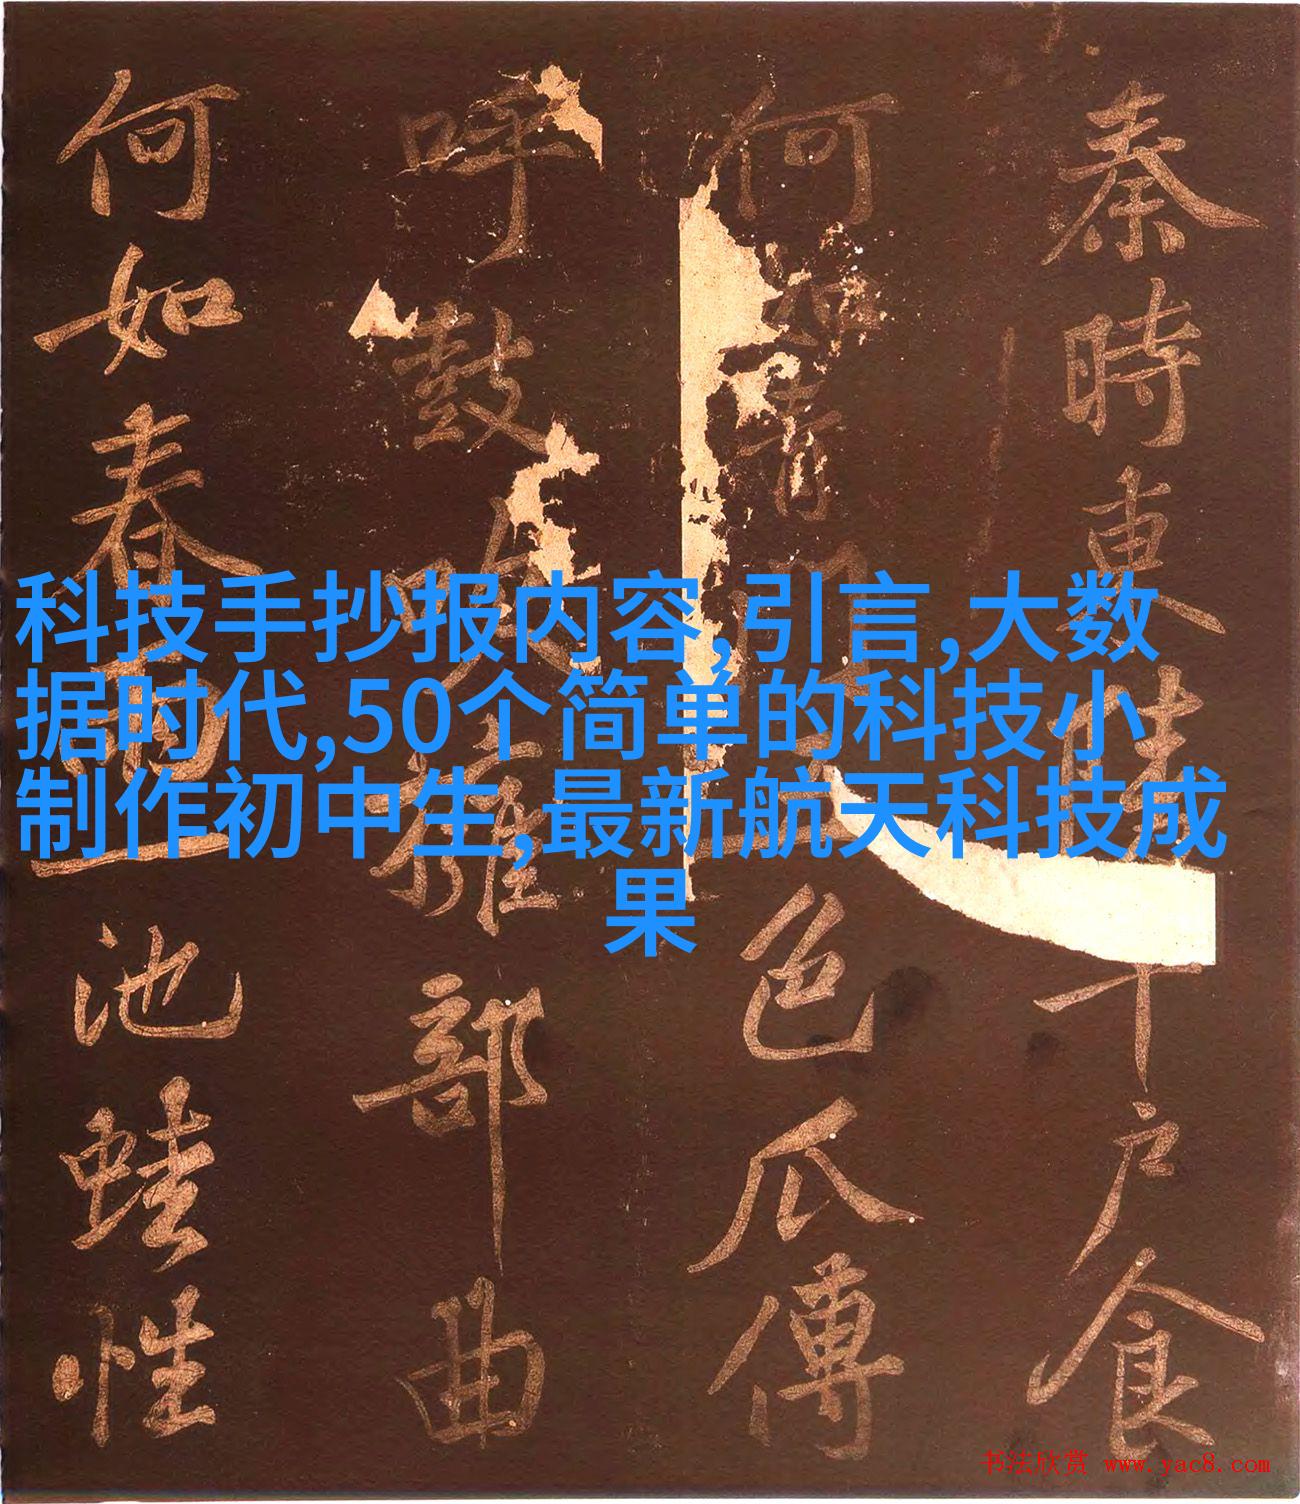 科技手抄报内容,引言,大数
据时代,50个简单的科技小
制作初中生,最新航天科技成
果
秦時東陵千戶食
何如青門五色瓜傳
呼鼓吹擁部曲
何如春池蛙性
书法欣赏 www.yac8.com